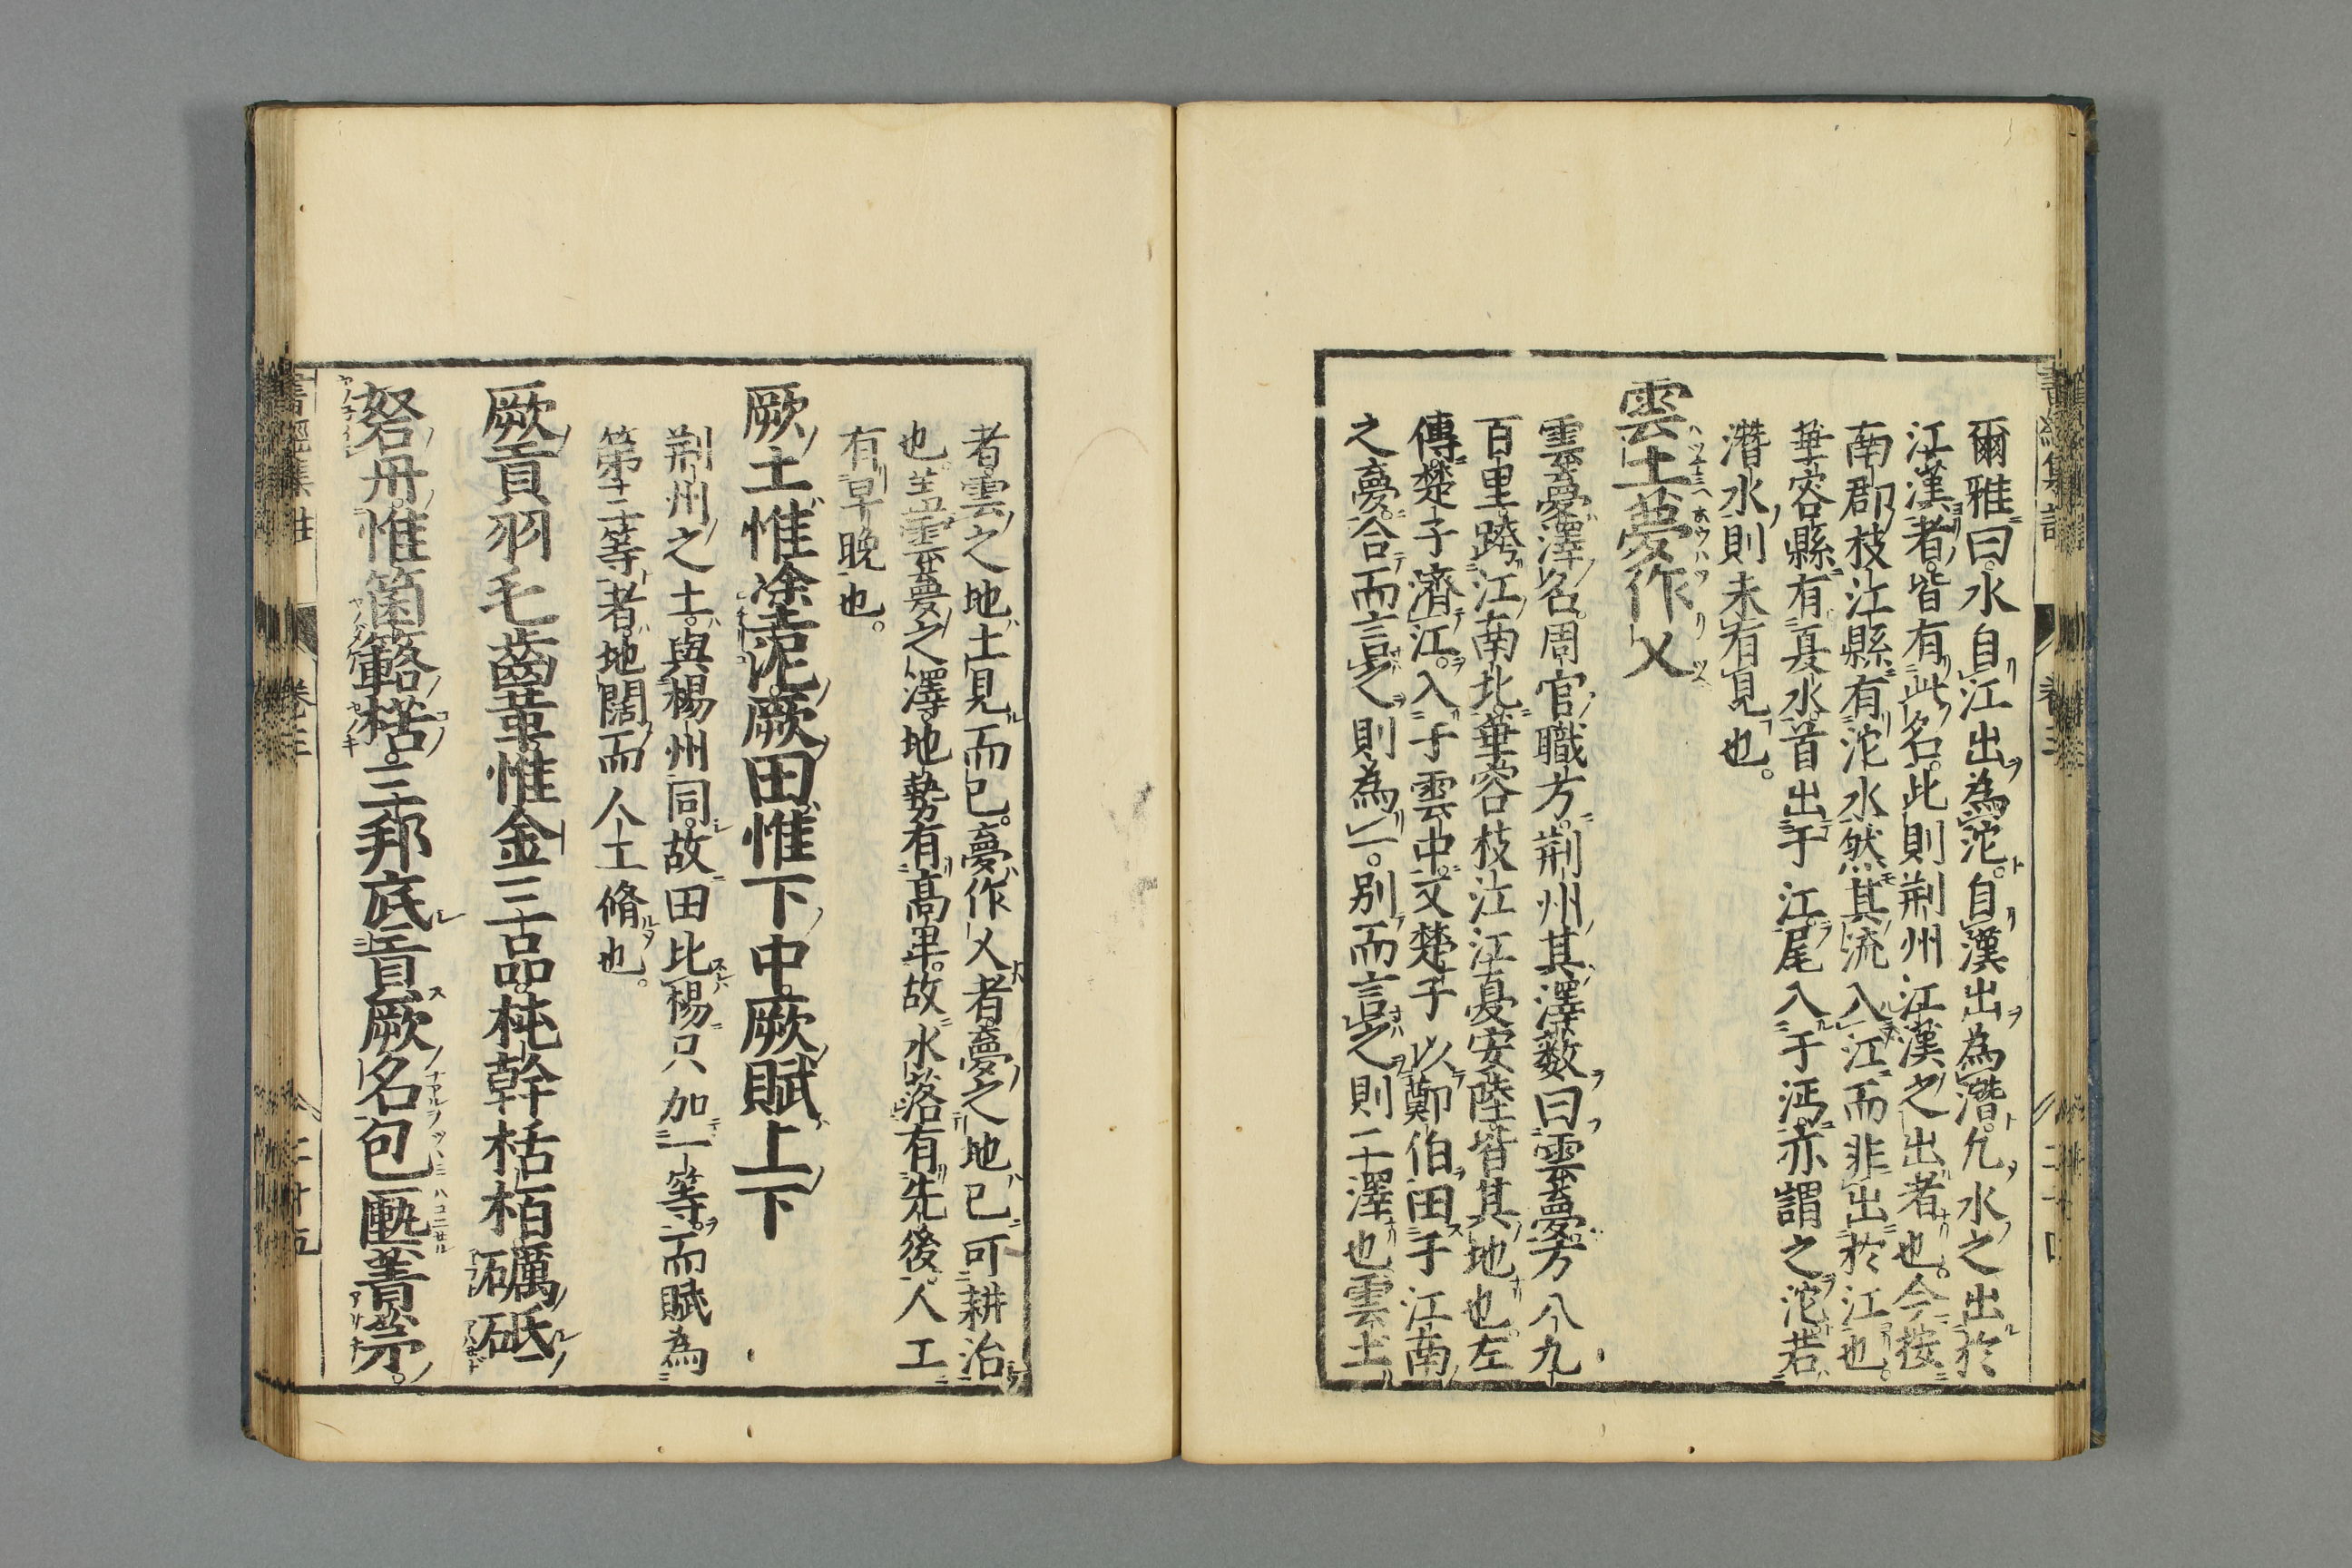 爾雅曰。水自江出為沱。自漢出為潛。凢水之出於
江漢者。皆有此名。此則荆州江漢之出者也。今按
南郡枝江縣有沱水。然其流入江而非出於江也。
華容縣有夏水。首出于江。尾入于沔。亦謂之沱。若
潛水則未有見也。
雲土夢作乂
雲夢澤名。周官職方。荆州其澤藪曰雲夢。方八九
百里。跨江南北。華容枝江江夏安陸皆其地也。左
傳。楚子濟江。入于雲中。又楚子以鄭伯田于江南
之夢。合而言之則為一。別而言之則二澤也。雲土
者。雲之地土見而已。夢作乂者。夢之地已可耕治
也。盖雲夢之澤。地勢有高卑。故水落有先後。人工
有早晚也。
厥土惟塗泥。厥田惟下中。厥賦上下
荆州之土。與楊州同。故田比楊只加一等。而賦為
第三等者。地闊而人工脩也。
厥貢羽毛齒革惟金三品。杶幹栝栢礪砥
砮丹。惟箘簵楛。三邦底貢厥名包匭菁茅。